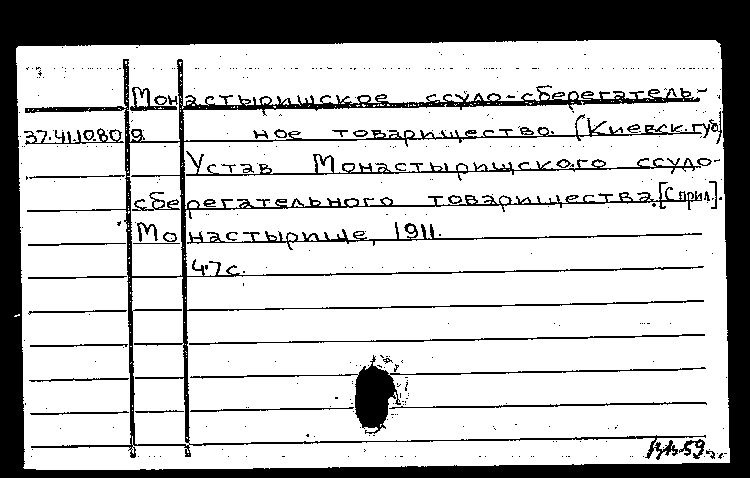 Монастырищское ссудо-сберегатель-
37.41.10.80 д ное товарищество. (Киевск.губ)
Устав Монастырищского ссудо-
сберегательного товарищества.[С прил].
Монастырище, 1911.
47 с.